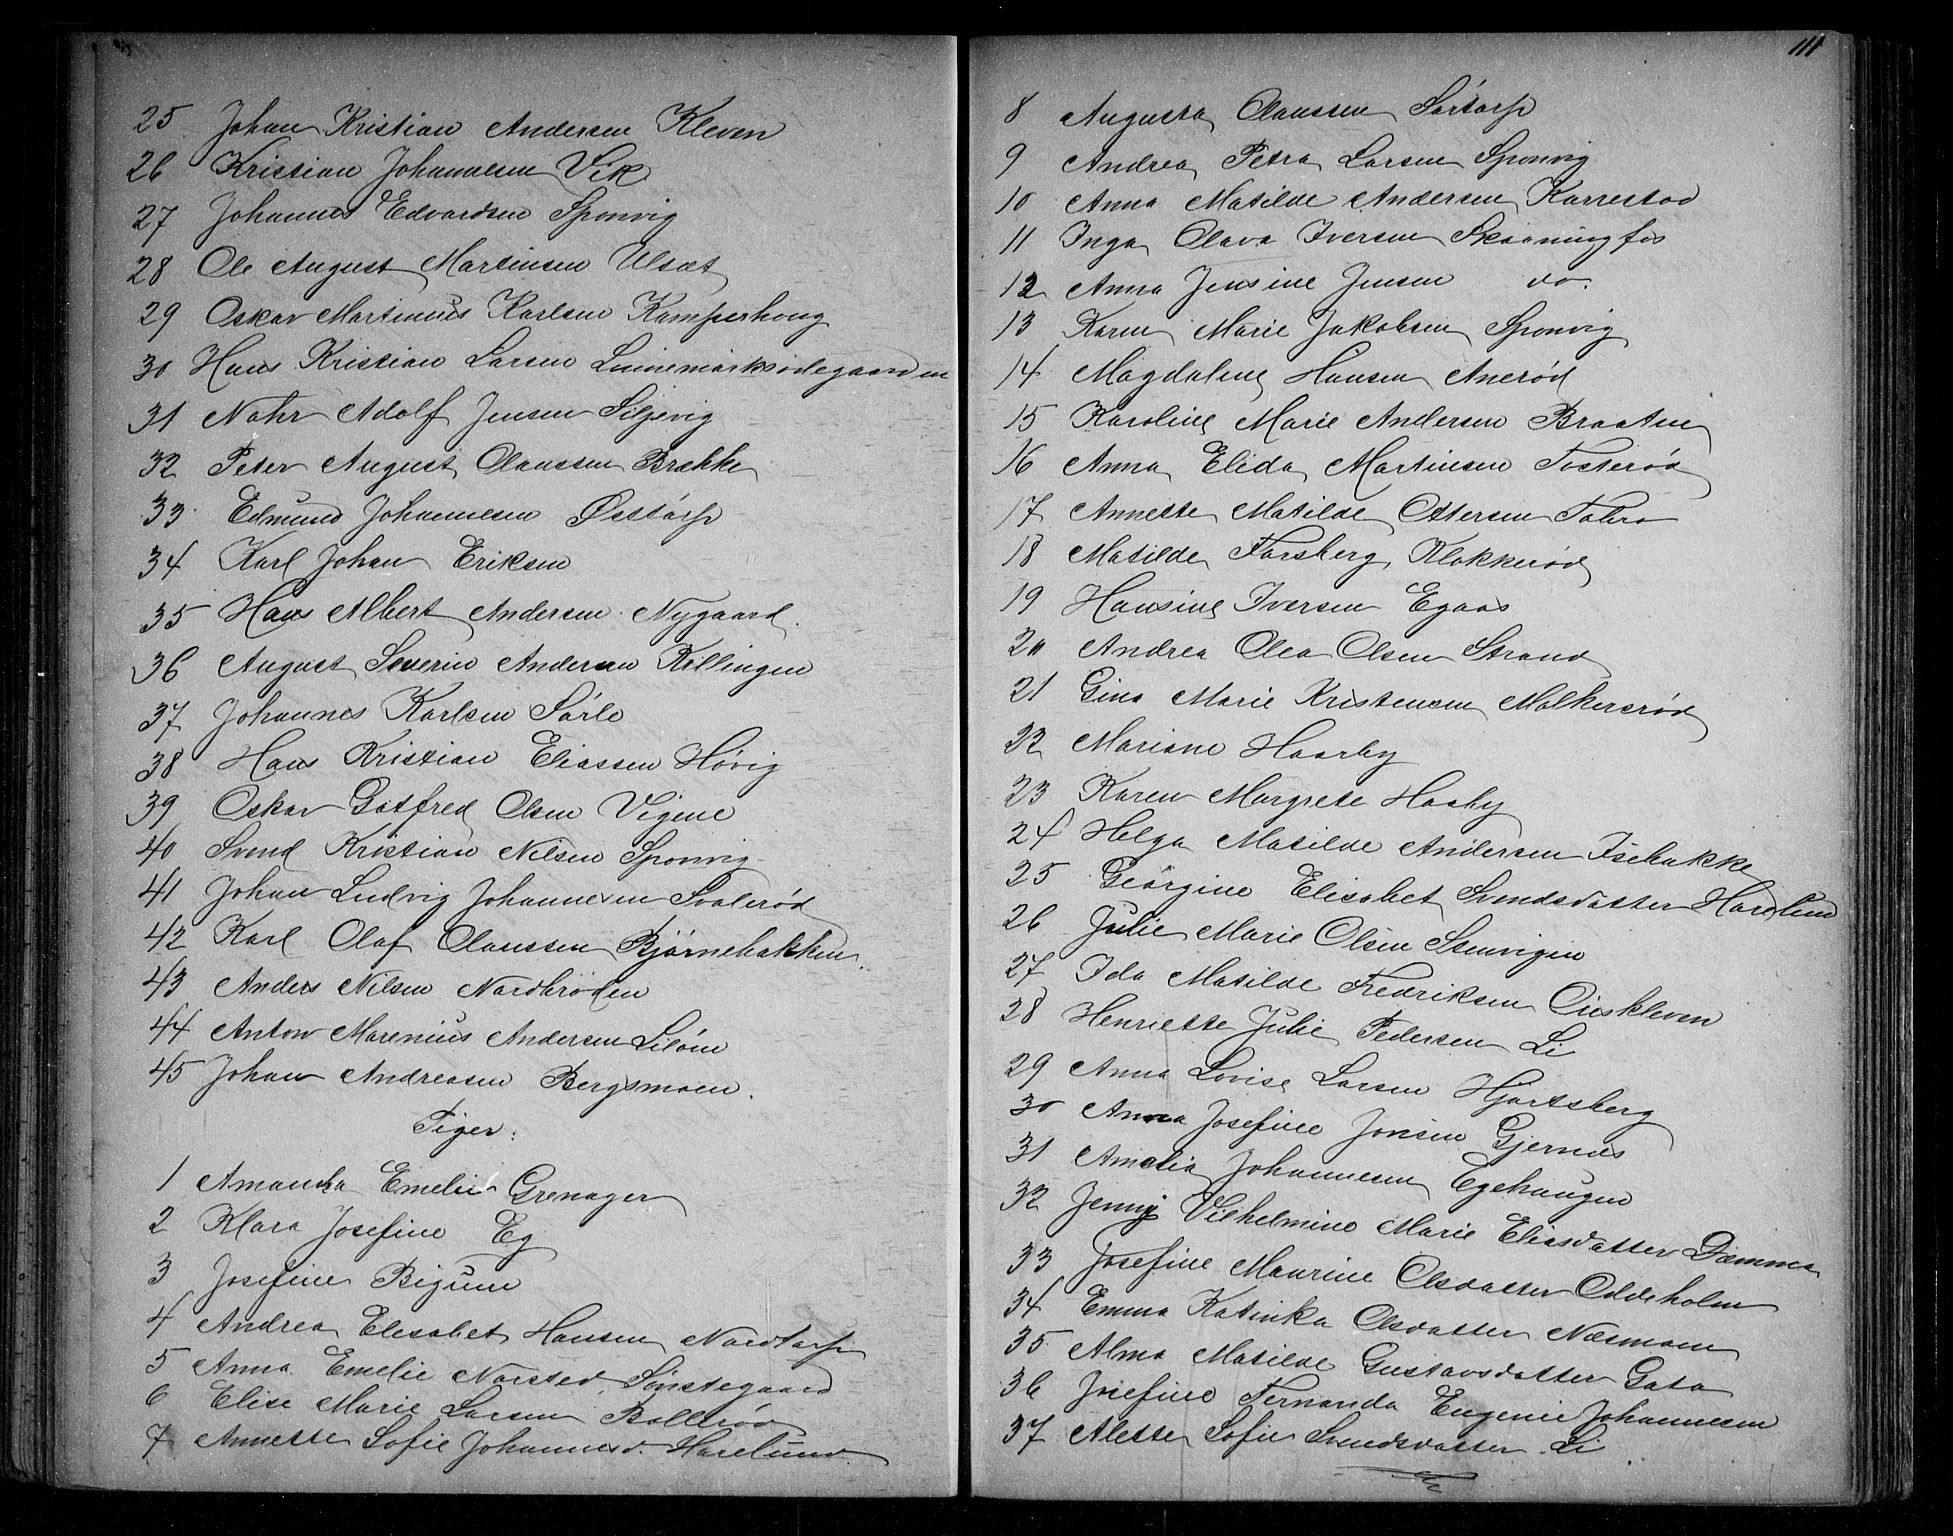 25 Johan Kristian Andersen Kleven
26 Kristian Johannesen Vik
27 Johannes Edvardsen Sponvig
28 Ole August Martinsen Ulsæt
29 Oskar Martinius Karlsen Kamperhoug
30 Hans Kristian Larsen Linnemarksødegaarden
31 Nohr Adolf Jensen Siljevig
32 Peter August Olaussen Brække
33 Edmund Johannesen Østtorp
34 Karl Johan Eriksen
35 Hans Albert Andersen Nygaard.
36 August Severin Andersen Killingen
37 Johannes Karlsen Sørle
38 Hans Kristian Eliassen Høvig
39 Oskar Gotfred Olsen Vigene
40 Svend Kristian Nilsen Sponvig
41 Johan Ludvig Johannesen Svalerød
42 Karl Olaf Olaussen Bjørnebakken.
43 Anders Nilsen Nordbrøden
44 Anton Marenius Andersen Liløen
45 Johan Andreasen Bergsmoen.
Piger:
1 Amanda Emelie Grenager
2 Klara Josefine Eg
3 Josefine Bigum
4 Andrea Elisabet Hansen Nordtorp
5 Anna Emelie Norsted, Sønstegaard
6 Elise Marie Larsen Bollerød
7 Annette Sofie Johannesd. Harelund.
111
8 Augusta Olaussen Sørtorp
9 Andrea Petra Larsen Sponvig
10 Anna Matilde Andersen Karrestad
11 Inga Olava Iversen Skaaningfos
12 Anna Jensine Jensen do.
13 Karen Marie Jakobsen Sponvig
14 Magdaline Hansen Anerød
15 Karoline Marie Andersen Braaten
16 Anna Elida Martinsen Fosterød
17 Annette Matilde Ottersen
18 Matilde Forsberg, Klokkerød
19 Hansine Iversen Egaas
20 Andrea Olea Olsen Strand
21 Gina Marie Kristensen Molkersrød
22 Mariane Haaby
23 Karen Margrete Haaby
24 Helga Matilde Andersen Isebakke
25 Georgine Elisabet Svendsdatter Harelund
26 Julie Marie Olsen Stenvigen
27 Ida Matilde Fredriksen
28 Henriette Julie Pedersen Li
29 Anna Lovise Larsen Hjortsberg
30 Anna Josefine Jonsen Gjernes
31 Amalia Johannesen Egehaugen
32 Jenny Vilhelmine Marie Eliasdatter Damma
33 Josefine Maurine Olsdatter Oddeholm
34 Emma Katinka Olsdatter Næsmoen
35 Alma Matilde Gustavsdatter Gata
36 Josefine Fernanda Eugenie Johannesen
37 Alette Sofie Svendsdatter Li.